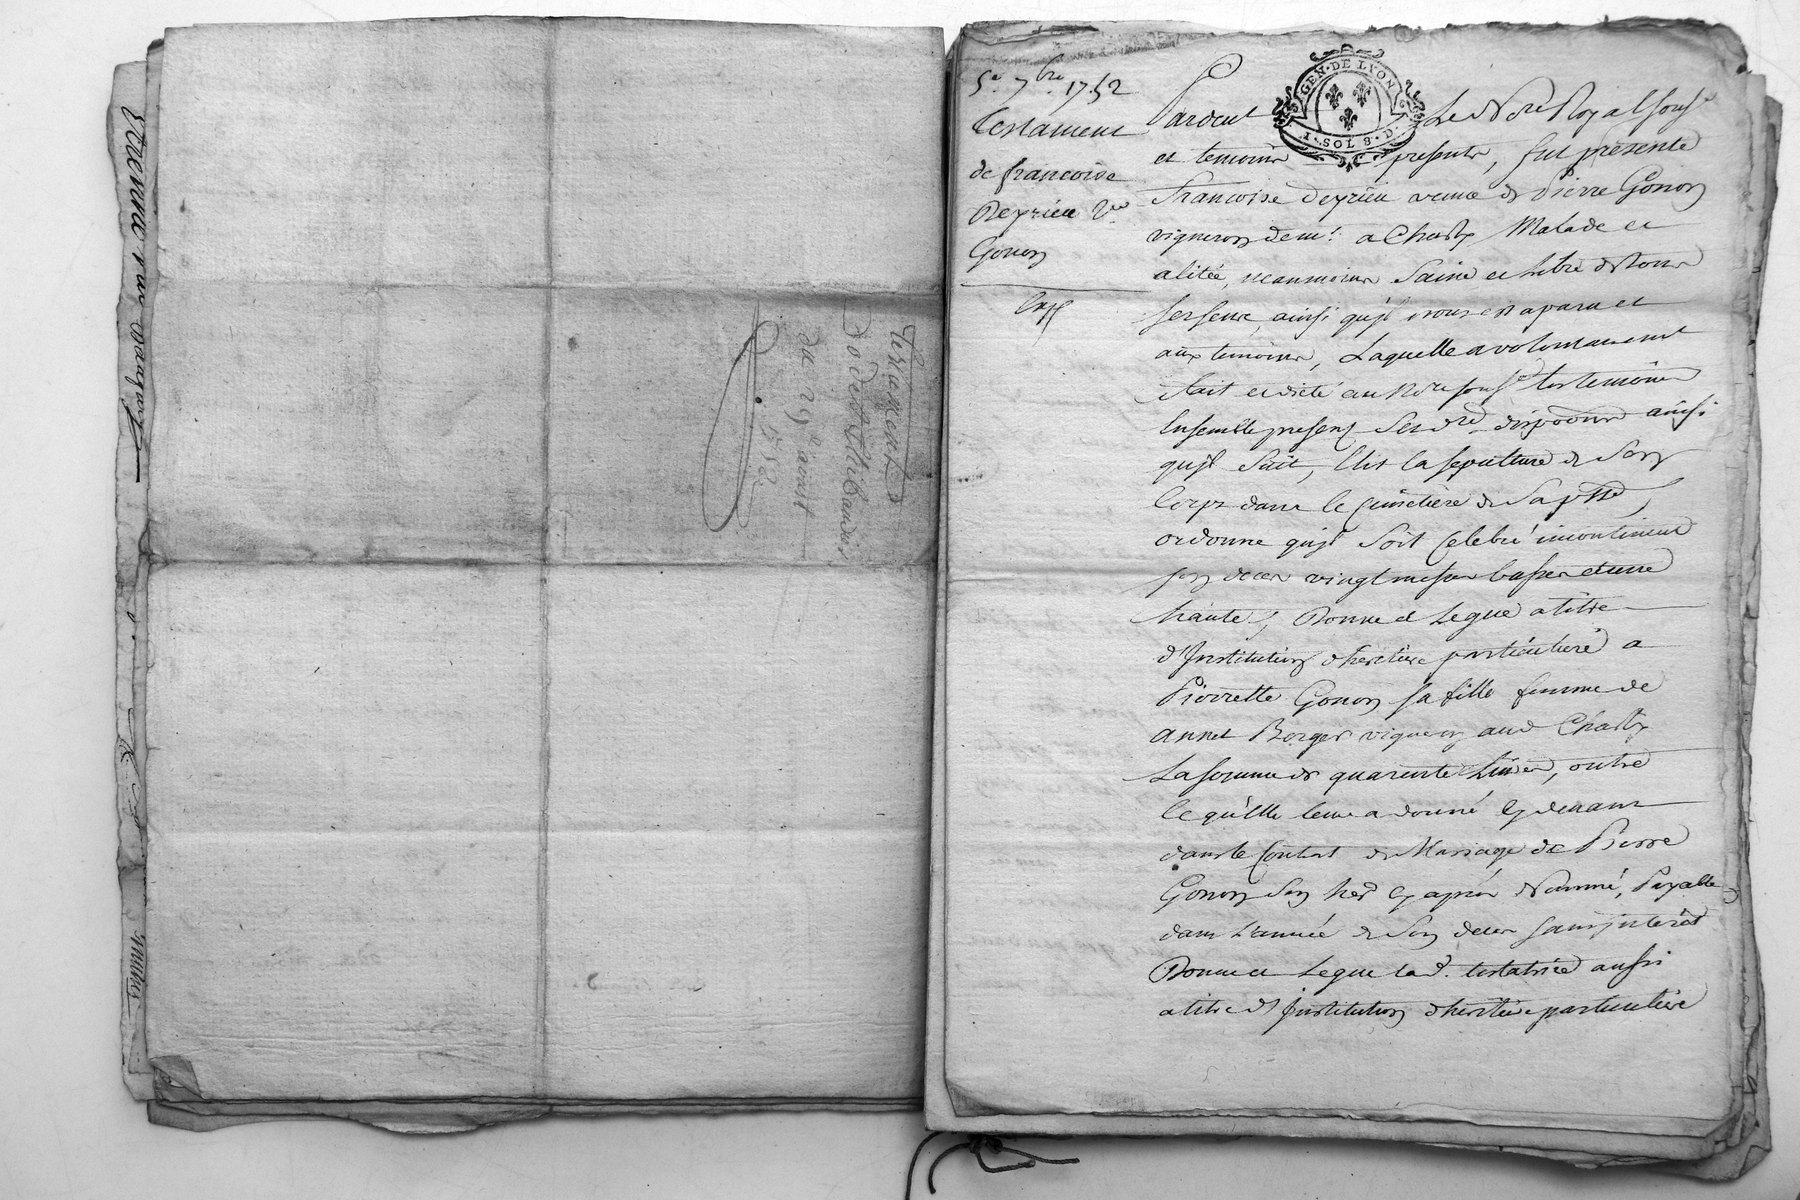 Testament
de
du 29e aoust
1752
5e 7bre 1752
Testament
de francoise
Deyrieu Ve
Gonon
Exp
GEN·DE LYON
1·SOL 8·D·
Pardevt Le Nore Royal sousé
et temoins presents, fut presente
francoise Deyrieu veuve de Pierre Gonon
vigneron demt a Charly Malade et
alitée, neanmoins saine et libre de tous
ses sens, ainsi qu'jl nous est aparu et
aux temoins, Laquelle a volontairement
fait et dicté au Nore sousé les temoins
Ensemble presens son dre dispodure ainsi
qu'jl suit, Elit la sepulture de son
Corps dans le Cimetiere de sa psse,
ordonne qu'jl soit Celebré incontinent
son deces vingt messes basses et une
haute, Donne et Legue a titre
d'Jnstitution d'heritiere particuliere a
Pierrette Gonon sa fille femme de
annet Berger vigneron aud Charly
La somme de quarente Livres, outre
ce qu'Elle leur a donné cy devant
dans le Contrat de Mariage de Pierre
Gonon son her cy aprés Nommé, Payable
dans L'année de son deces sans jnterêt
Donne et Legue lad. testatrice aussi
a titre d'Jnstitution d'heritiere particuliere